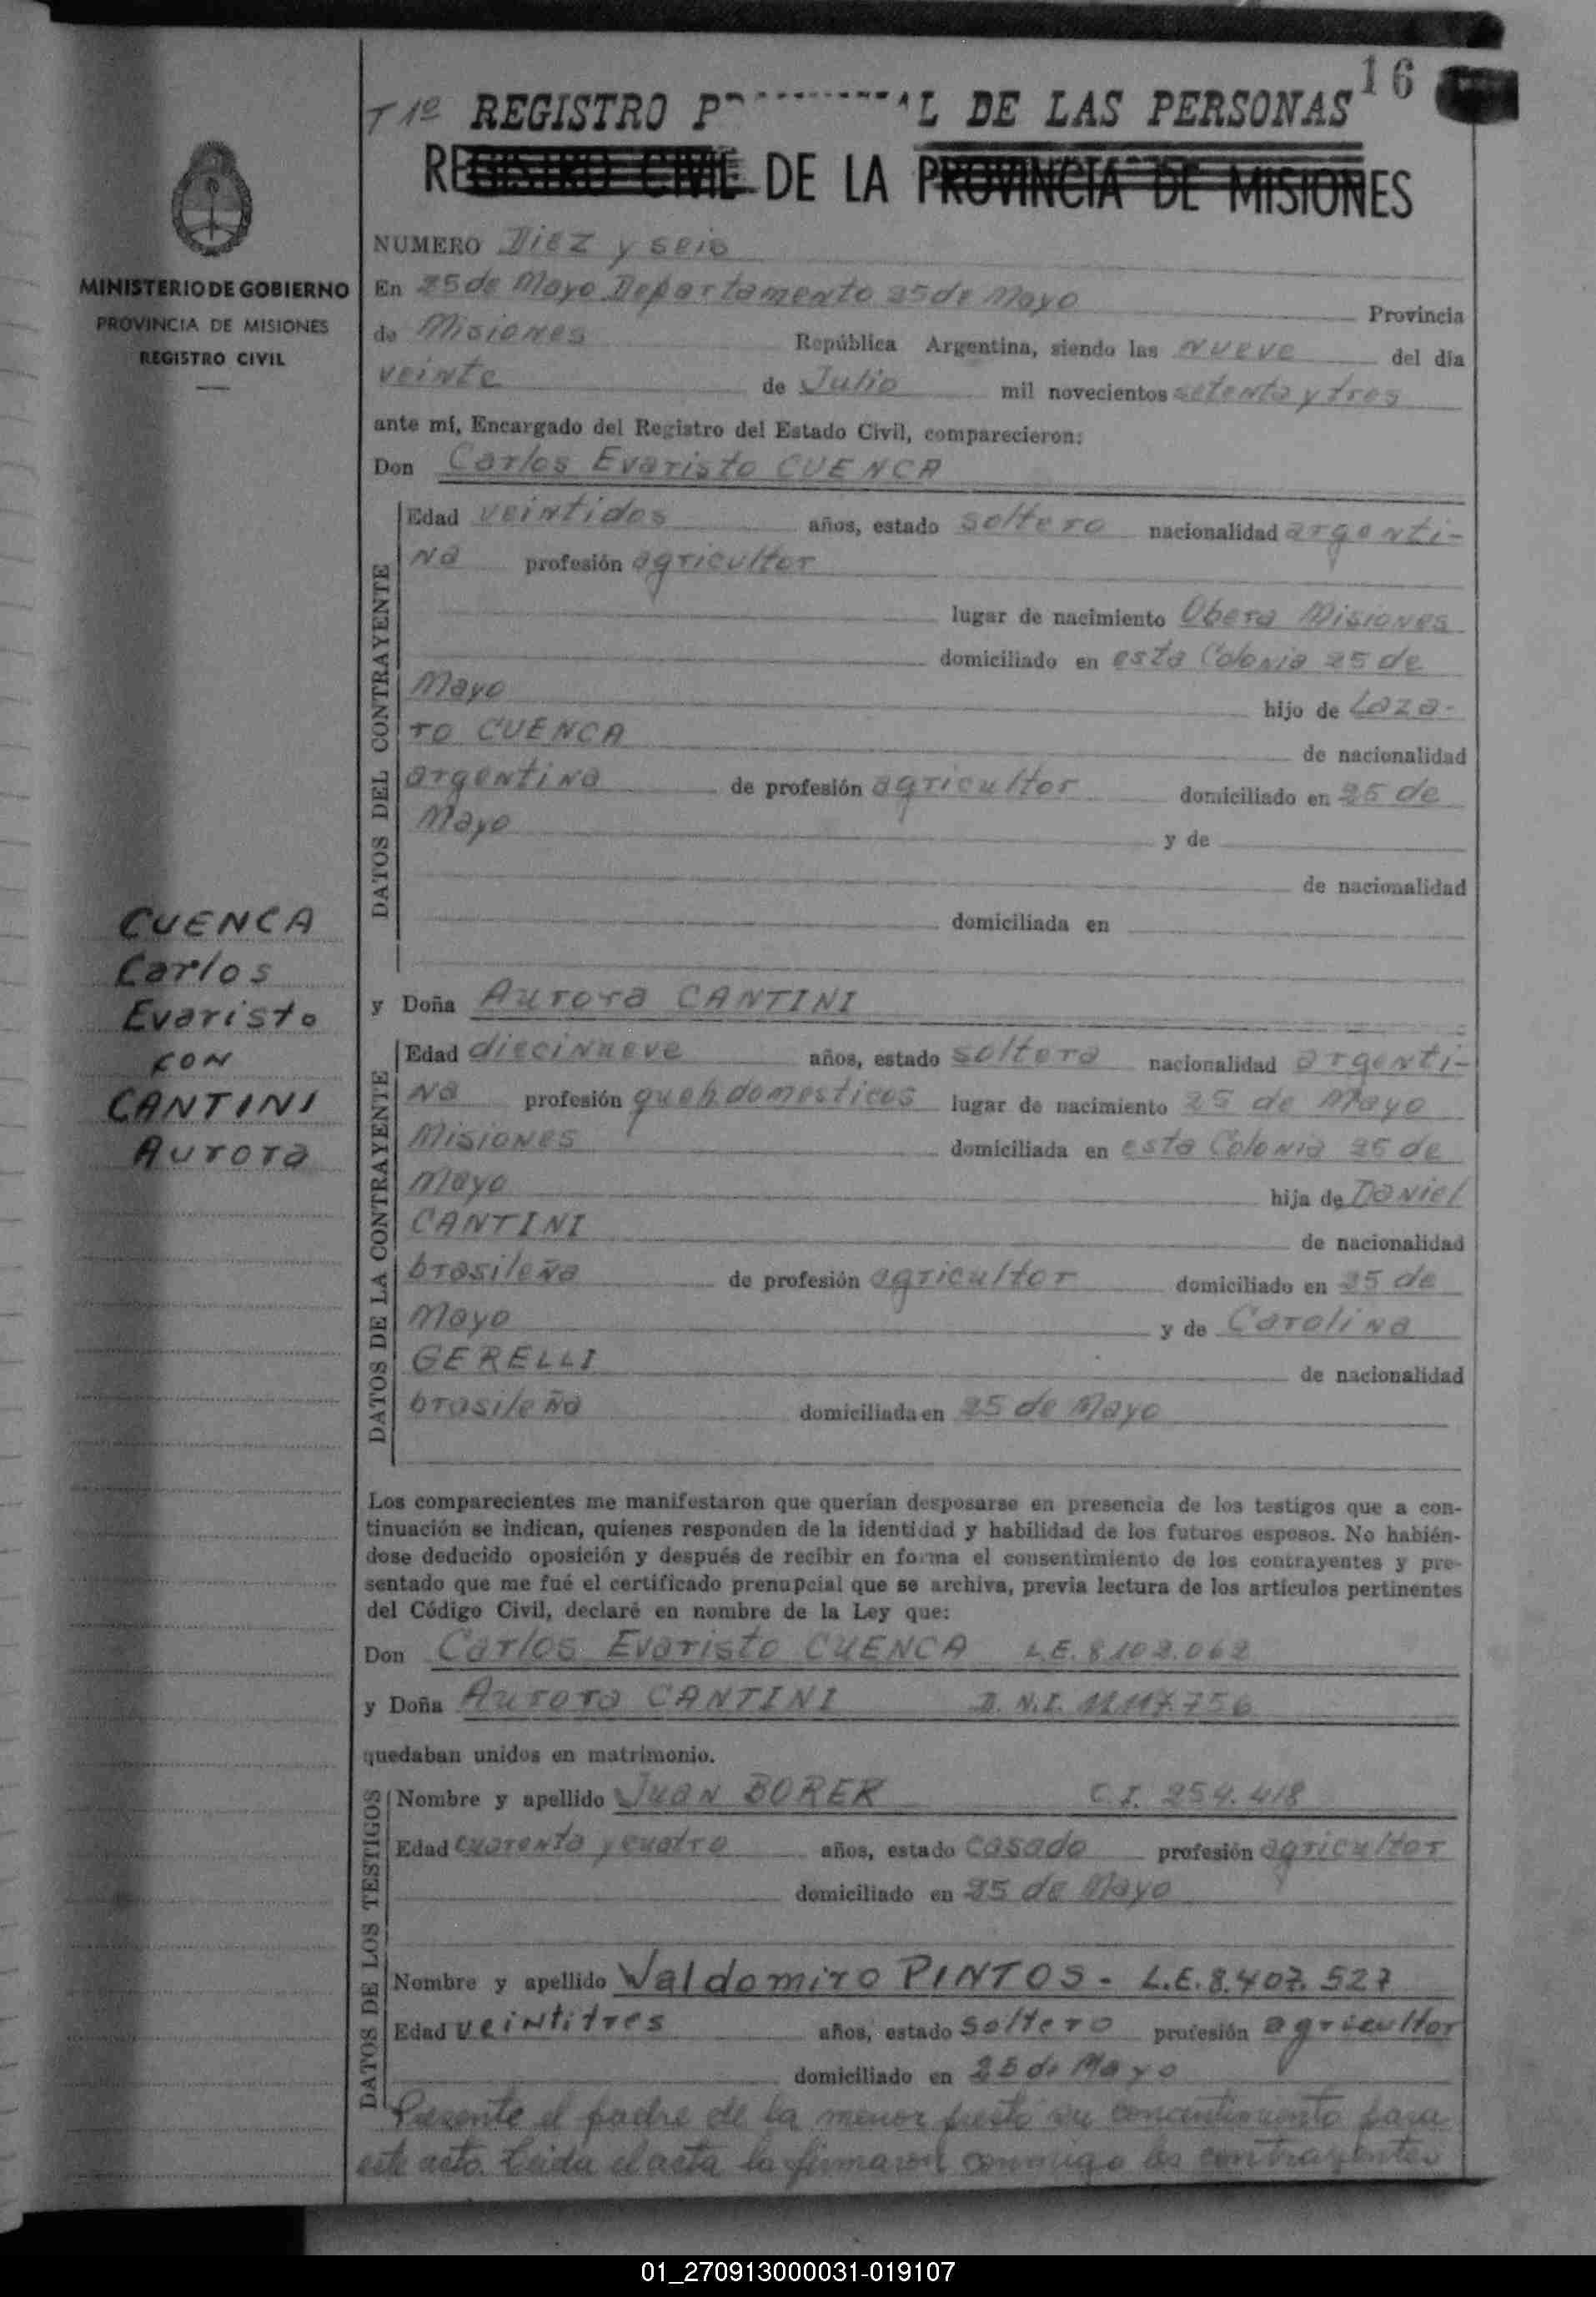 16
T 1º REGISTRO P L DE LAS PERSONAS
REGISTRO CIVIL DE LA PROVINCIA DE MISIONES
MINISTERIO DE GOBIERNO
PROVINCIA DE MISIONES
REGISTRO CIVIL
CUENCA
Carlos
Evaristo
CON
CANTINI
Aurora
NUMERO Diez y seis
En 25 de Mayo Departamento 25 de Mayo Provincia
de Misiones República Argentina, siendo las nueve del día
veinte de Julio mil novecientos setenta y tres
ante mí, Encargado del Registro del Estado Civil, comparecieron:
Don Carlos Evaristo CUENCA
DATOS DEL CONTRAYENTE
Edad veintidos años, estado soltero nacionalidad argenti-
na profesión agricultor
lugar de nacimiento Obera Misiones
domiciliado en esta Colonia 25 de
Mayo hijo de Laza-
ro CUENCA de nacionalidad
argentina de profesión agricultor domiciliado en 25 de
Mayo y de
de nacionalidad
domiciliada en
y Doña Aurora CANTINI
DATOS DE LA CONTRAYENTE
Edad diecinueve años, estado soltera nacionalidad argenti-
na profesión domesticos lugar de nacimiento 25 de Mayo
Misiones domiciliada en esta Colonia 25 de
Mayo hija de Daniel
CANTINI de nacionalidad
brasileña de profesión agricultor domiciliado en 25 de
Mayo y de Carolina
GERELLI de nacionalidad
brasileña domiciliada en 25 de Mayo
Los comparecientes me manifestaron que querían desposarse en presencia de los testigos que a con-
tinuación se indican, quienes responden de la identidad y habilidad de los futuros esposos. No habién-
dose deducido oposición y después de recibir en forma el consentimiento de los contrayentes y pre-
sentado que me fué el certificado prenupcial que se archiva, previa lectura de los artículos pertinentes
del Código Civil, declaré en nombre de la Ley que:
Don Carlos Evaristo CUENCA L.E. 8.102.062
y Doña Aurora CANTINI D.N.I. 11.117.756
quedaban unidos en matrimonio.
DATOS DE LOS TESTIGOS
Nombre y apellido Juan BORER C.I. 254.418
Edad cuarenta y cuatro años, estado casado profesión agricultor
domiciliado en 25 de Mayo
Nombre y apellido Waldomiro PINTOS - L.E. 8.407.527
Edad veintitres años, estado soltero profesión agricultor
domiciliado en 25 de Mayo
Presente el padre de la menor presto su concentimiento para
este acto. Leida el acta la firmaron conmigo los contrayentes
01_270913000031-019107